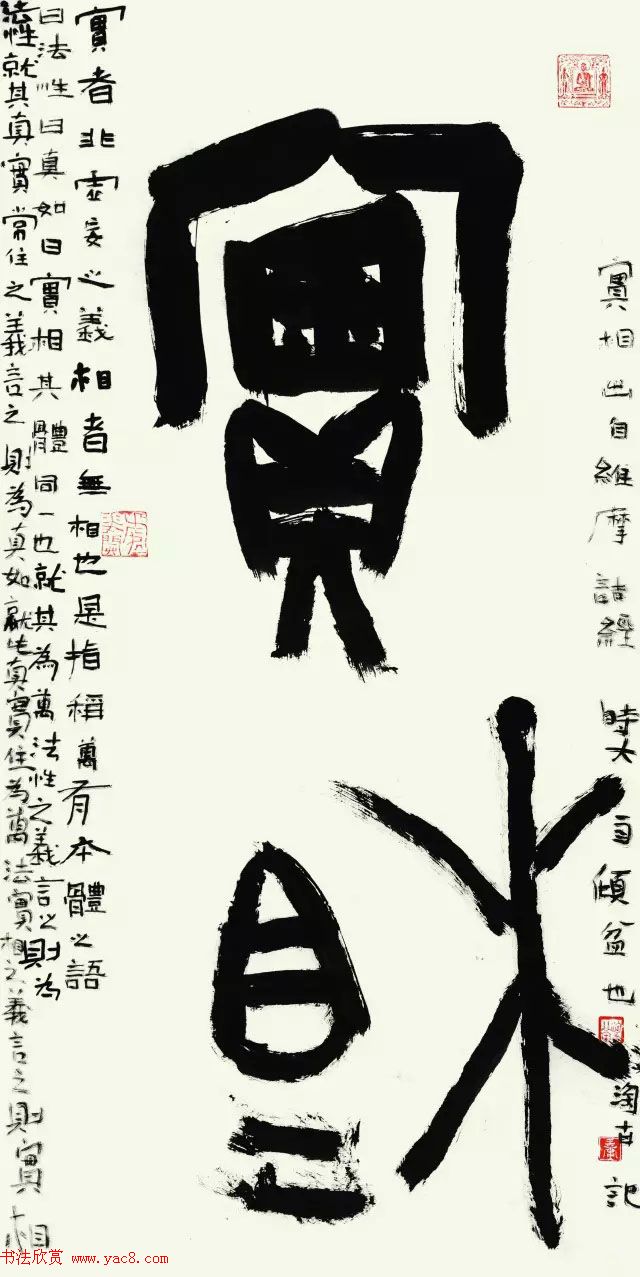 實相
實相出自維摩詰經 時大雨傾盆也 記
實者非虛妄之義相者無相也是指稱萬有本體之語
曰法性曰真如曰實相其體同一也就其為萬法性之義言之則為
法性就其真實常住之義言之則為真如就其真實住為萬法實相之義言之則實相
书法欣赏 www.yac8.com